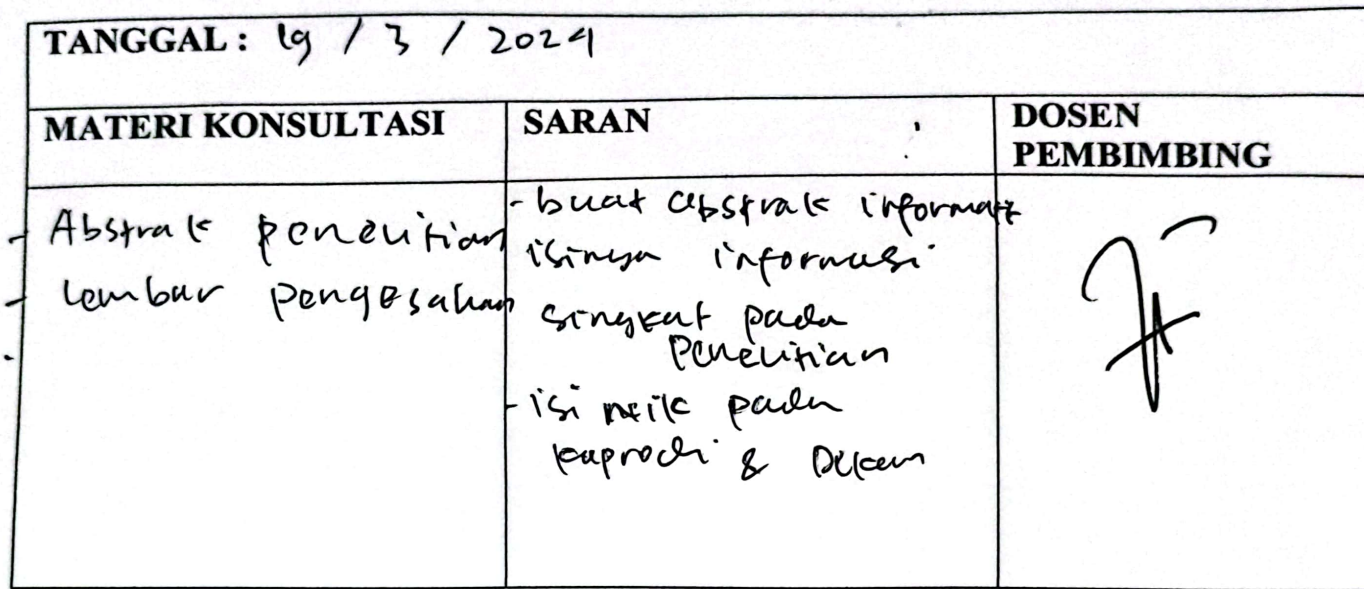 TANGGAL : 19 / 3 / 2024
MATERI KONSULTASI
SARAN
DOSEN
PEMBIMBING
- Abstrak penelitian
- Lembar pengesahan
- buat abstrak informatif
isinya informasi
singkat pada
penelitian
- isi pada
kaprodi & Dekan